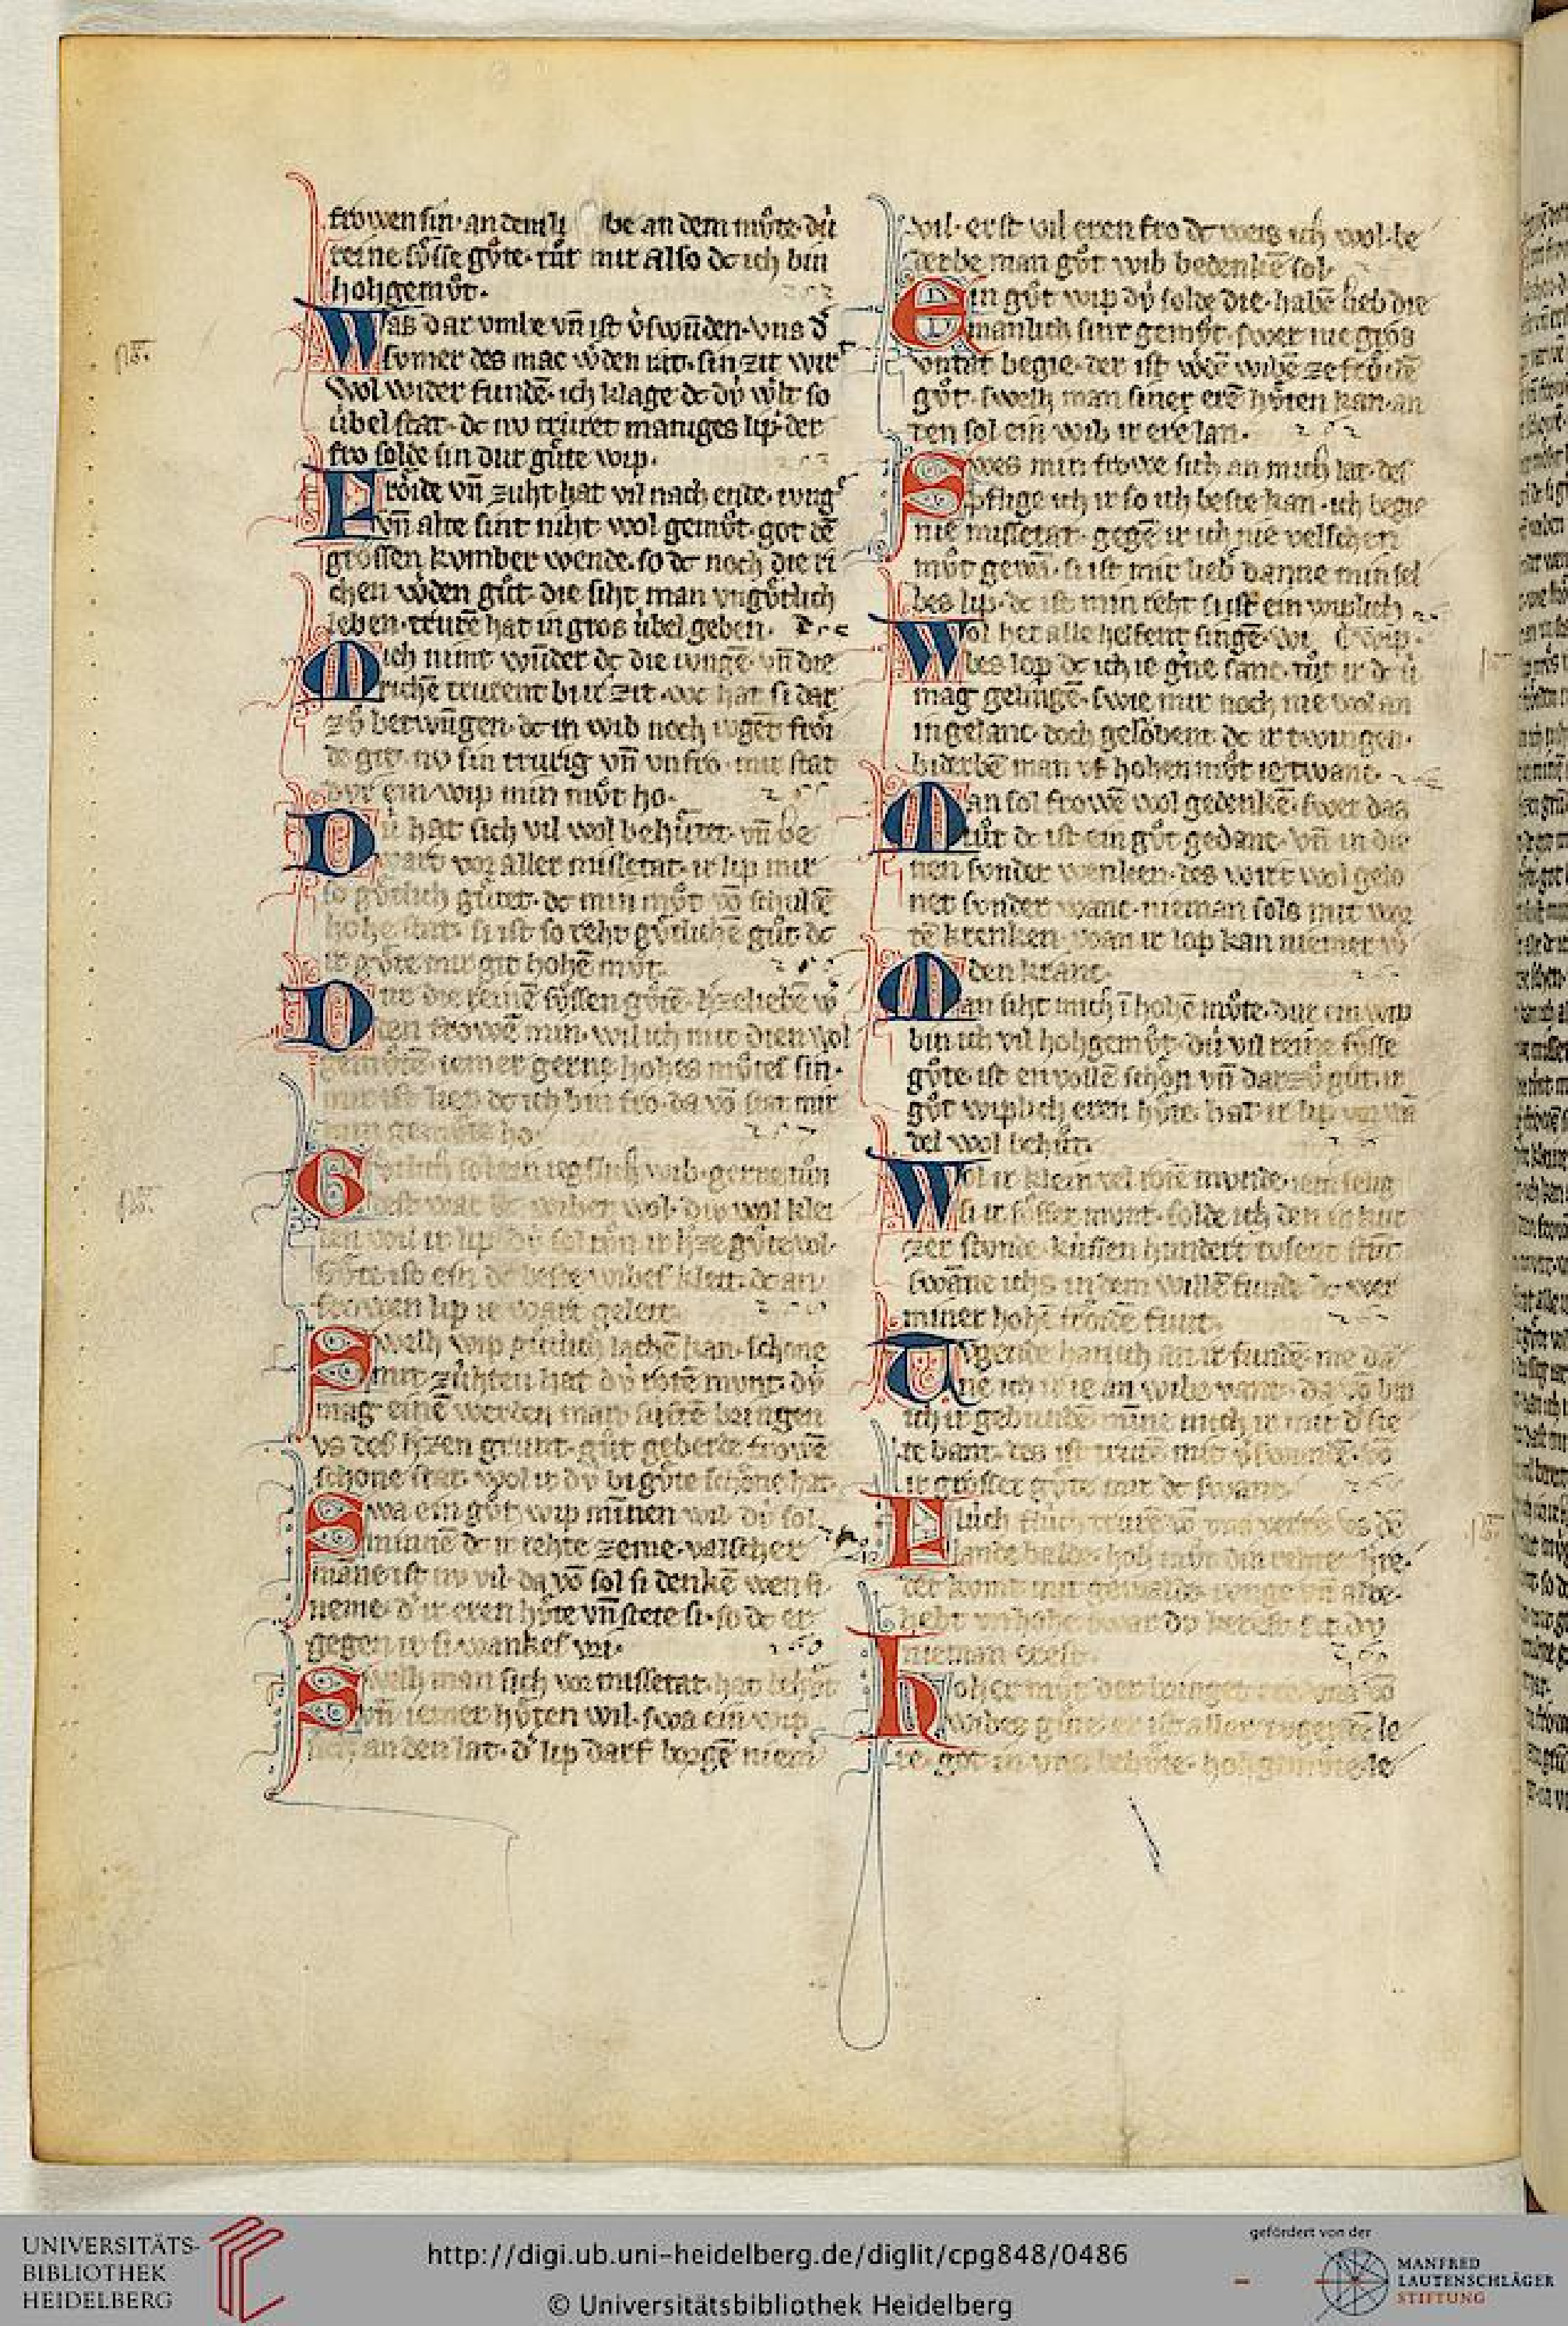 frowen sin· an dem li be an dem můte· dú
reine sůsse gůte· tůt mir also dc ich bin
hohgemůt·
Was dar vmbe vn̄ ist v̾swūden· vns d̾
sumer des mac w̾den rat· sin zit wirt
wol wider fundē· ich klage dc dú w̾lt so
úbel stat· dc nv truret maniges lip· der
fro solde sin dur gůte wip·
Fröide vn̄ zuht hat vil nach ende· iung̾
vn̄ alte sint niht wol gemůt· got dē
grossen komber wende· so dc noch die ri
chen w̾den gůt· die siht man vngůtlich
leben· trurē hat in gros úbel geben·
Mich nimt wūder dc die iungē· vn̄ die
richē trurent bi ir zit· wc hat si dar
zů betwūgen· dc in wib noch iugēt fröi
de git· nv sin trurig vn̄ vnfro· mir stat
dur ein wip min můt ho·
Dú hat sich vil wol behůtet· vn̄ be
wart vor aller missetat· ir lip mir
so gůtlich gůtet· dc min můt vō schuldē
hohe stat· si ist so reht gůtlichē gůt· dc
ir gůte mir git hohē můt·
Dur die reinē sůssen gůtē· h̾zeliebē w̾
den frowē min· wil ich mit dien wol
gemůtē· iemer gerne hohes můtes sin·
mir ist liep dc ich bin fro· da vō stat mir
min gemůte ho·
wib· gerne tůn
wol· dú wol klei
den wil ir lip· dú sol tůn ir h̾ze gůte vol·
gůte dc beste wibes kleit· dc an
frowen lip ie wart geleit·
Swelh wip gůtlich lachē kan· schone
mit zúhten hat dú rotē munt· dú
mag einē werden man súftē bringen
vs des h̾zen grunt· gůt geberde frowē
schone stat· wol ir dú bi gůte schöne hat·
Swa ein gůt wip minnen wil· dú sol
minnē dc ir rehte zeme· valscher
manne ist nv vil· da vō sol si denkē wen si
neme· d̾ ir eren hůte vn̄ stete si· so dc er
gegen ir si wankes vri·
Swelh man sich vor missetat· hat behůt
vn̄ iemer hůten wil· swa ein wip
sich an den lat· d̾ lip darf borgē niem̾
vil· er ist vil eren fro dc weis ich wol· be
derbe man gůt wib bedenkē sol·
Ein gůt wip dú solde die· habē lieb die
manlich sint gemůt· swer nie gros
vntat begie· der ist w̾dē wibē ze fröidē
gůt· swelh man siner erē hůten kan· an
den sol ein wib ir ere lan·
Swes min frowe sich an mich lat· des
pflige ich ir so ich beste kan· ich begie
nie missetat· gegē ir ich nie velschen
můt gewā· si ist mir lieb danne min sel
bes lip· dc ist min reht si ist ein wiplich
Wol her alle helfent singē· wip·
bes lop dc ich ie g̾ne sanc· tůt ir dc ú
mag gelingē· swie mir noch nie wol an
in gelanc· doch gelöbent dc ir twingen·
biderbē man vf hohen můt ie twanc·
Man sol frowē wol gedenkē· swer das
tůt dc ist ein gůt gedanc· vn̄ in die
nen sunder wenken· des wirt wol gelo
net sunder wanc· nieman sols mit wor
tē krenken· wan ir lop kan niemer w̾
den kranc·
Man siht mich ī hohē můte· dur ein wip
bin ich vil hohgemůt· dú vil reine sůsse
gůte· ist envollē schön vn̄ darzů gůt· ir
gůt wiplich eren hůte· hat ir lip vor wā
del wol behůt·
Wol ir klein vel rotē munde· iemer selig
si ir sůsser munt· solde ich den ie kur
zer stunde· kússen hundert tusent stūt·
swanne ichs in dem willē funde dc wer
miner hohē fröidē funt·
Tugende han ich an ir fundē· me dā
ne ich ie an wibe vant· da vō bin
ich ir gebundē· minne mich ir mit d̾ ste
te bant· des ist trurē mir v̾swundē· so
ir grosser gůte mir dc swant·
Flúch flúch trurē vō vns verre· vs dē
lande balde· hoh můt din rehter h̾re·
der kumt mit gewalde· iunge vn̄ alde·
nieman
Hoher můt vō
wibes gůte·
re· got in vns behůte· hohgemůte· le
UNIVERSITÄTS-
BIBLIOTHEK
HEIDELBERG
http://digi.ub.uni-heidelberg.de/diglit/cpg848/0486
© Universitätsbibliothek Heidelberg
gefördert von der
MANFRED
LAUTENSCHLÄGER
STIFTUNG